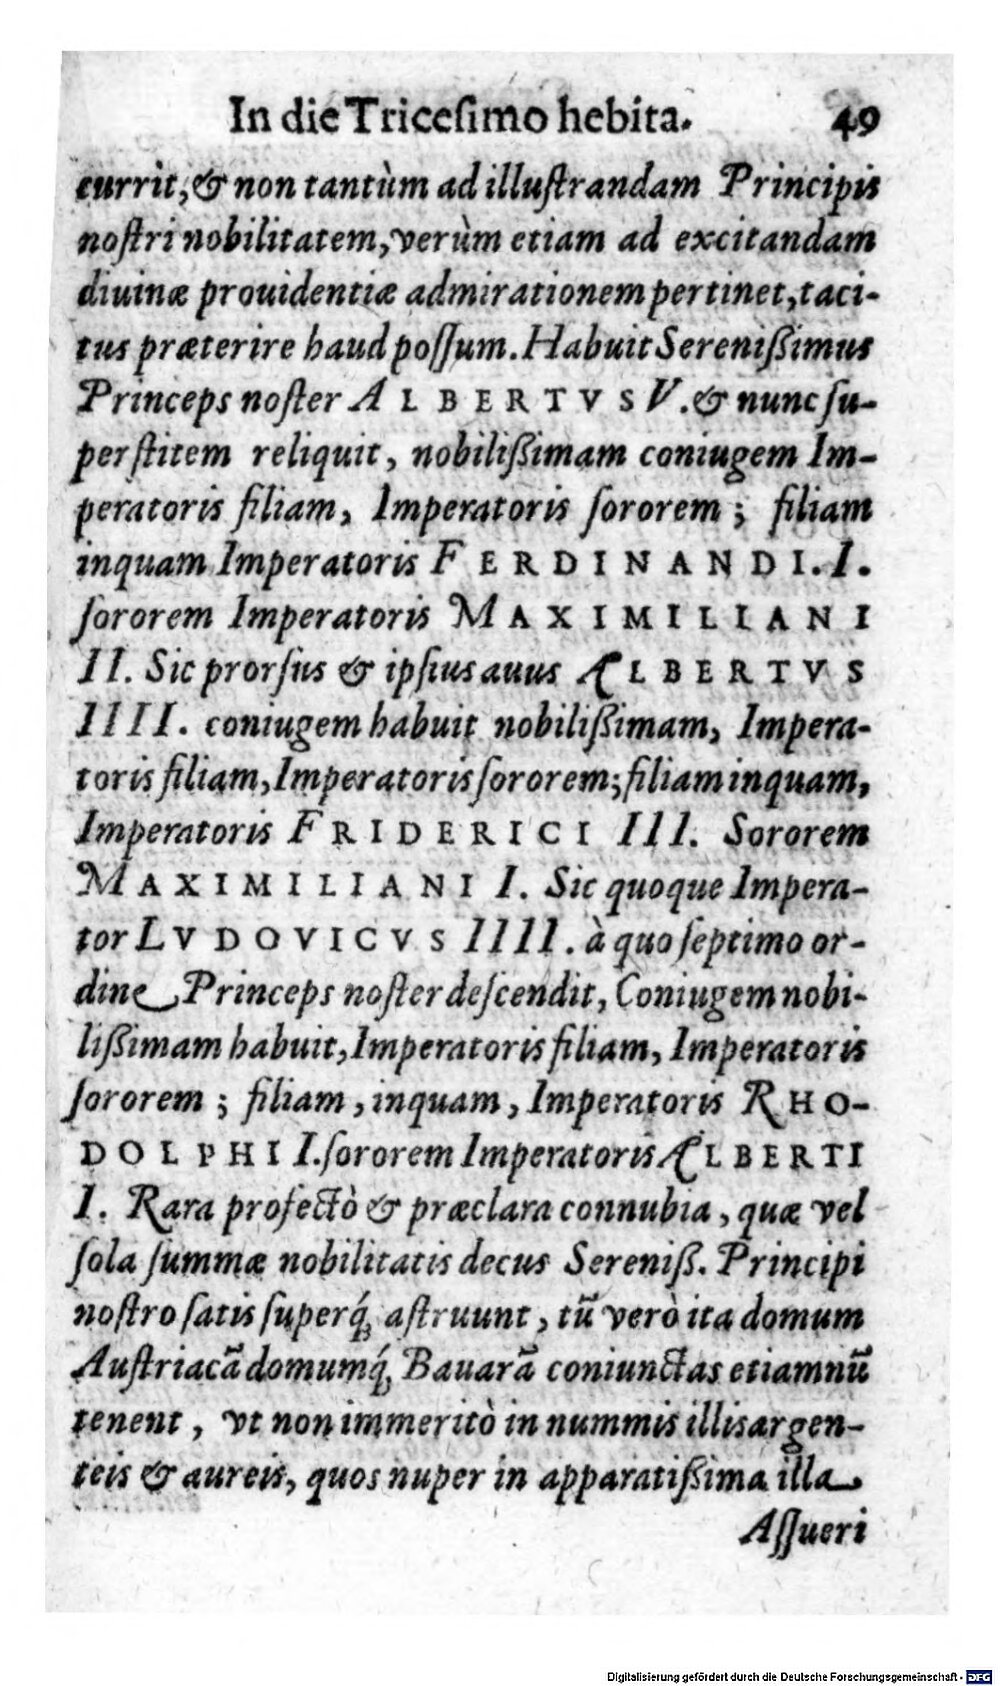 In die Triceſimo hebita. 49
currit, & non tantùm ad illuſtrandam Principis
noſtri nobilitatem, verùm etiam ad excitandam
diuinæ prouidentiæ admirationem pertinet, taci-
tus præterire haud poſſum. Habuit Sereniſſimus
Princeps noſter ALBERTVS V. & nunc ſu-
perſtitem reliquit, nobiliſſimam coniugem Im-
peratoris filiam, Imperatoris ſororem; filiam
inquam Imperatoris FERDINANDI. I.
ſororem Imperatoris MAXIMILIANI
II. Sic prorſus & ipſius auus ALBERTVS
IIII. coniugem habuit nobiliſſimam, Impera-
toris filiam, Imperatoris ſororem; filiam inquam,
Imperatoris FRIDERICI III. Sororem
MAXIMILIANI I. Sic quoque Impera-
tor LVDOVICVS IIII. à quo ſeptimo or-
dine Princeps noſter deſcendit, Coniugem nobi-
liſſimam habuit, Imperatoris filiam, Imperatoris
ſororem; filiam, inquam, Imperatoris RHO-
DOLPHI I. ſororem Imperatoris ALBERTI
I. Rara profectò & præclara connubia, quæ vel
ſola ſummæ nobilitatis decus Sereniſſ. Principi
noſtro ſatis ſuperq́; aſtruunt, tū verò ita domum
Auſtriacā domumq́; Bauarā coniunctas etiamnū
tenent, vt non immeritò in nummis illis argen-
teis & aureis, quos nuper in apparatiſſima illa
Aſſueri
Digitalisierung gefördert durch die Deutsche Forschungsgemeinschaft - DFG